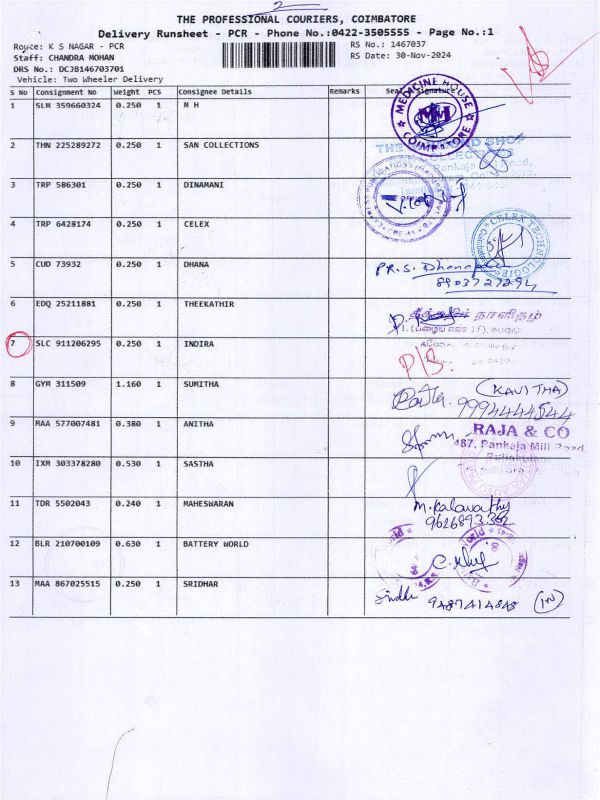 2
THE PROFESSIONAL COURIERS, COIMBATORE
Delivery Runsheet - PCR - Phone No.:0422-3505555 - Page No.:1
Royce: K S NAGAR - PCR
RS No.: 1467037
Staff: CHANDRA MOHAN
RS Date: 30-Nov-2024
DRS No.: DCJB146703701
Vehicle: Two Wheeler Delivery
S No Consignment No Weight PCS Consignee Details Remarks Seal Signature
1 SLM 359660324 0.250 1 M H
MEDICINE HOUSE MM COIMBATORE
2 THN 225289272 0.250 1 SAN COLLECTIONS
3 TRP 586301 0.250 1 DINAMANI
4 TRP 6428174 0.250 1 CELEX
CELEX TECHNOLOGIES
5 CUD 73932 0.250 1 DHANA
PR.S. Dhanapal
8903727294
6 EDQ 25211881 0.250 1 THEEKATHIR
7 SLC 911206295 0.250 1 INDIRA
P/S
8 GYM 311509 1.160 1 SUMITHA
(KAVITHA)
9994444544
9 MAA 577007481 0.380 1 ANITHA
RAJA & CO
487, Pankaja Mill Road
10 IXM 303378280 0.530 1 SASTHA
11 TDR 5502043 0.240 1 MAHESWARAN
M.Kalavathy
9626893362
12 BLR 210700109 0.630 1 BATTERY WORLD
13 MAA 867025515 0.250 1 SRIDHAR
Sindhu 9487414848 (IN)